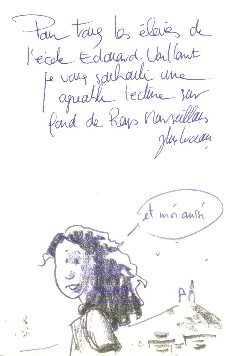 Pour tous les élèves de
l'école Edouard Vaillant
je vous souhaite une
agréable lecture sur
fond de Rap Marseillais
et moi aussi